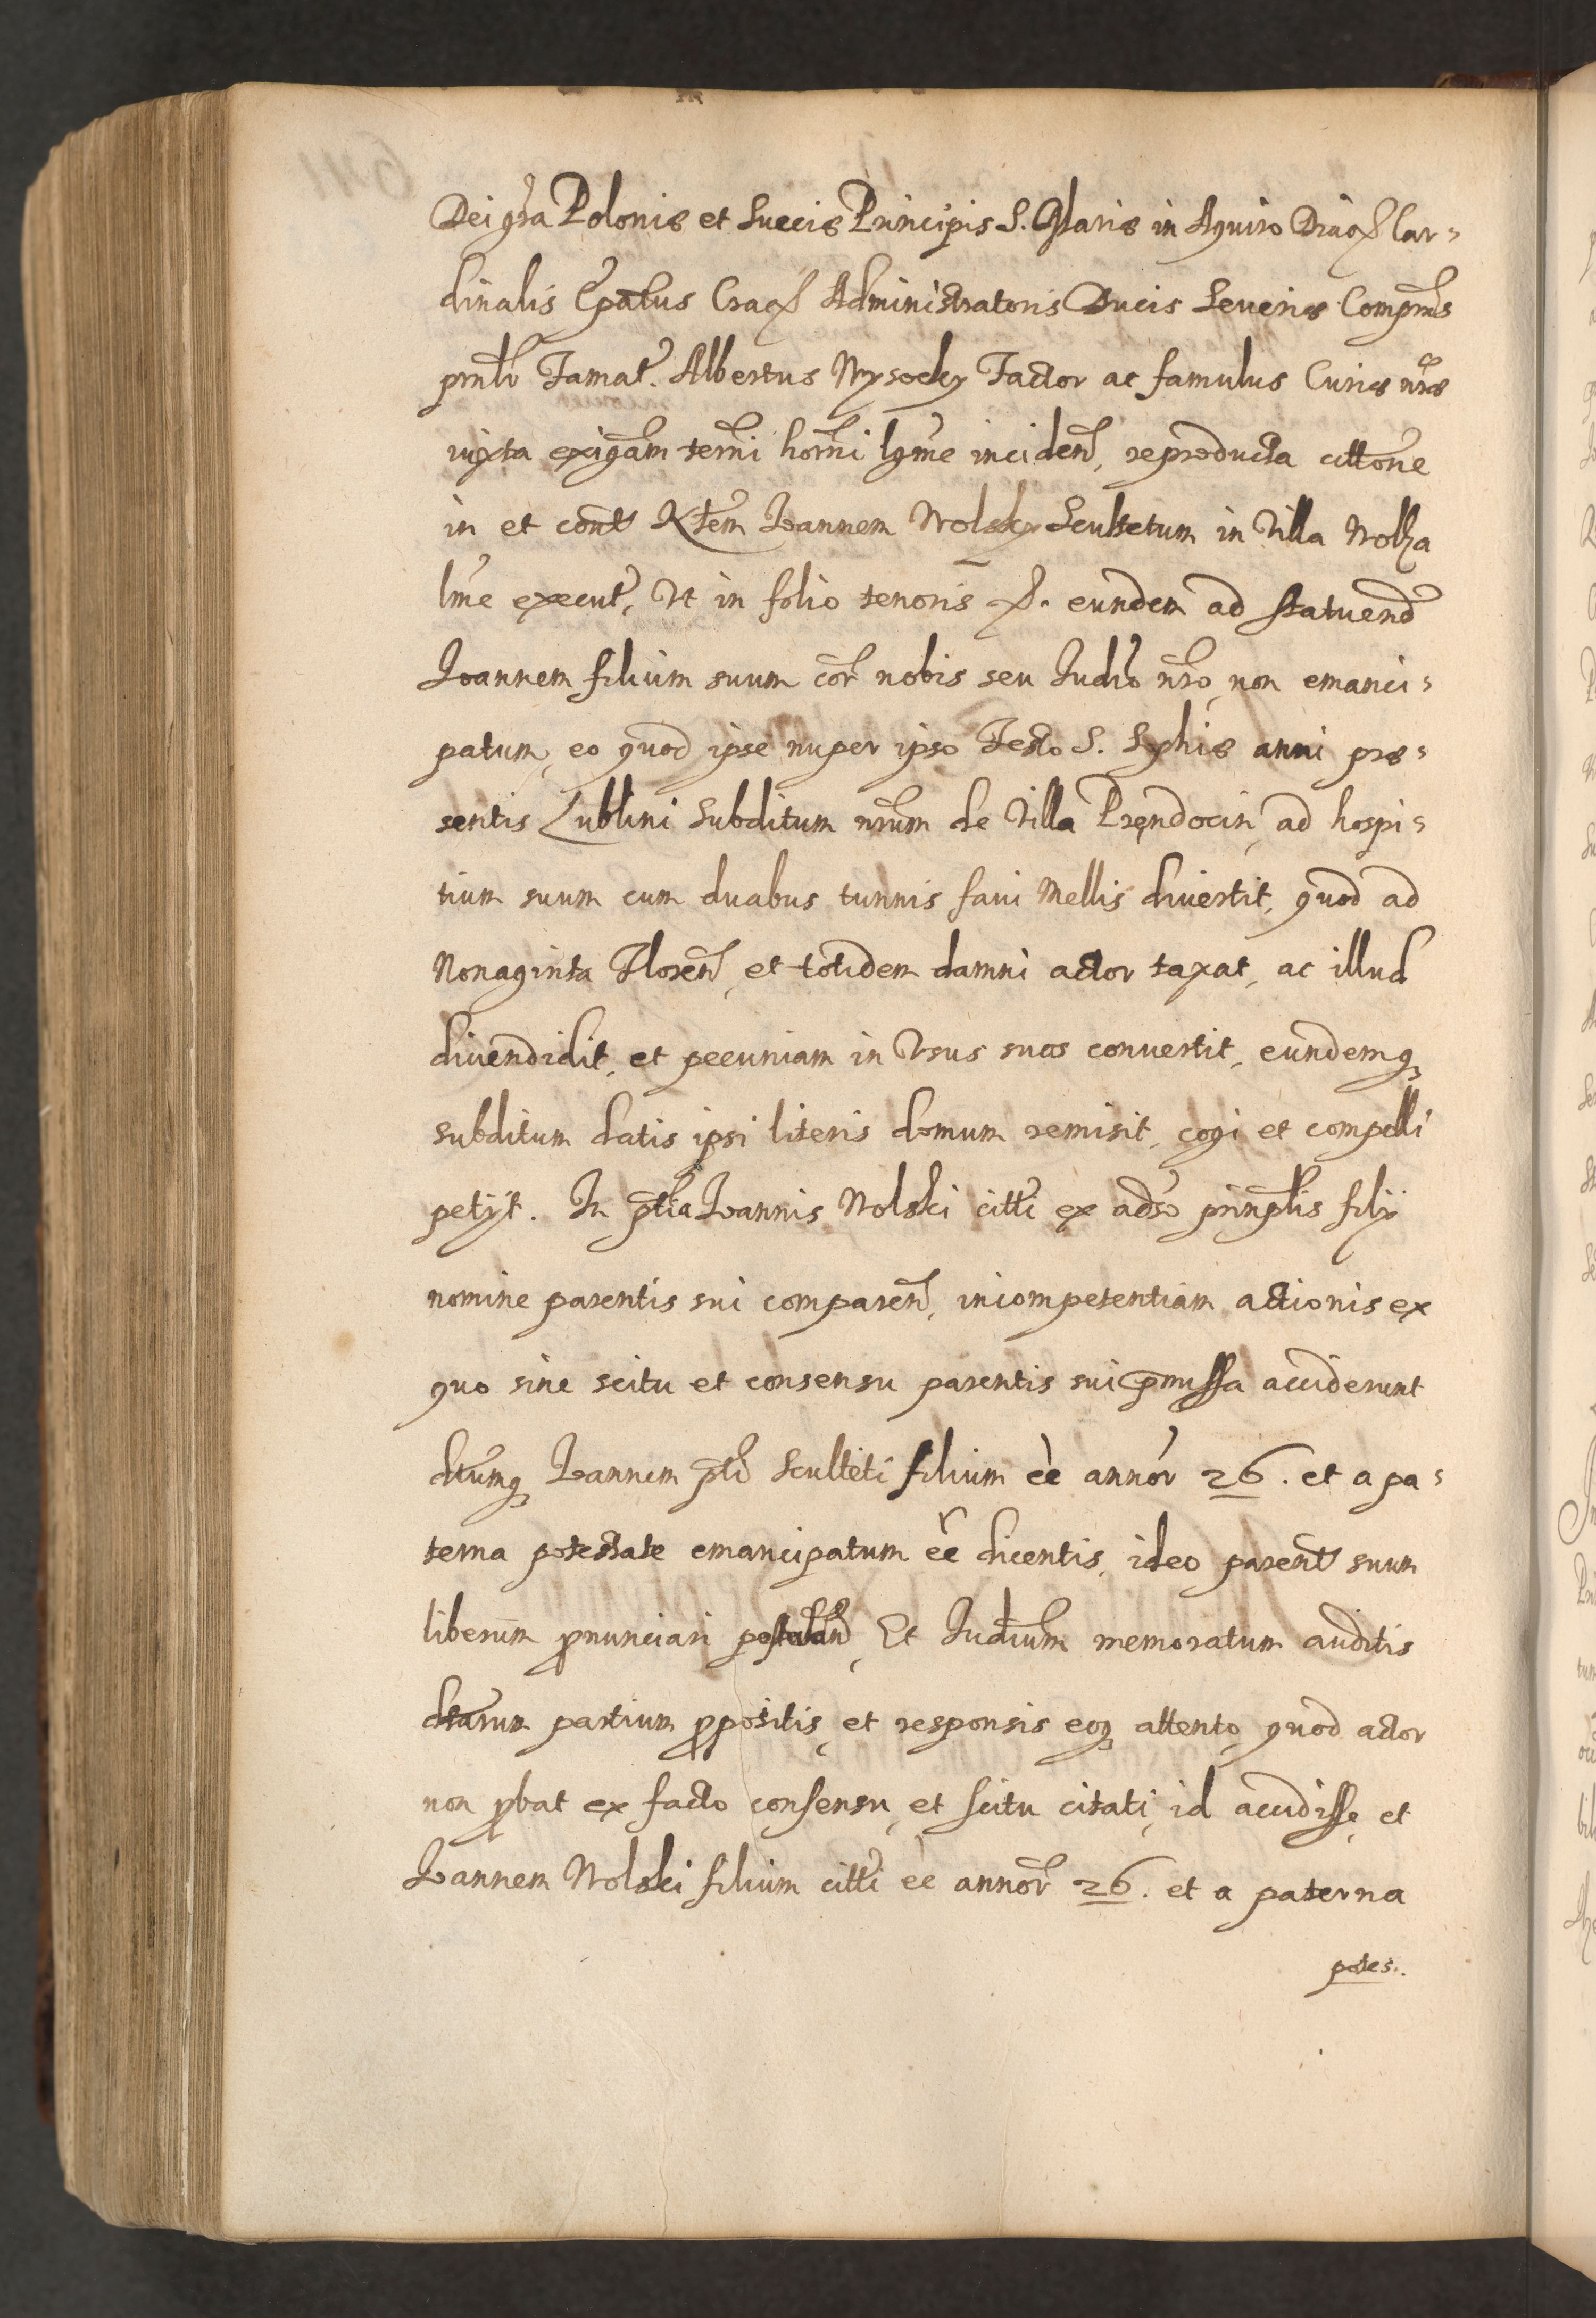 Dei gra Poloniæ et Sueciæ Principis S. Mariæ in Aquiro Diac Car-
dinalis Epatus Crac Administratoris Ducis Seueriæ Comprns
prnlr Famat. Albertus Wysocky Factor ac famulus Curiæ nræ
iuxta exigam termi horni lgme inciden, reproducta cittone
in et cont Joannem Wolsky Scultetum in Villa Wolya
lme execut, Vt in folio tenoris eundem ad statuend
Joannem filium suum cor nobis seu Judio nro, non emanci-
patum, eo quod ipse nuper ipso Festo S. Sophiæ anni præ-
sentis Lublini Subditum nrum de Villa Prendocin, ad hospi-
tium suum cum duabus tunnis faui Mellis diuertit, quod ad
Nonaginta Floren, et totidem damni actor taxat, ac illud
diuendidit, et pecuniam in Vsus suos conuertit, eundemq
subditum datis ipsi literis domum remisit, cogi et compelli
petijt. In ptia Joannis Wolski citti ex adso prinplis filij
nomine parentis sui comparen, incompetentiam actionis ex
quo sine scitu et consensu parentis sui pmissa acciderunt
dtumq Joannem pti Sculteti filium ee annor 26. et a pa-
terna potestate emancipatum ee dicentis, ideo parent suum
liberum pnunciari postuland, Et Judium memoratum auditis
dtarum partium ppositis, et responsis eoq attento, quod actor
non pbat ex facto consensu, et scitu citati, id accidisse, et
Joannem Wolski filium citti ee annor 26. et a paterna
potes.